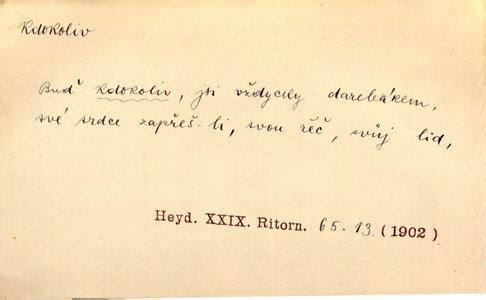 Kdokoliv
Buď kdokoliv, jsi vždycky darebákem,
své srdce zapřeš-li, svou řéč, svůj lid,
Heyd. XXIX. Ritorn. 65. 13. (1902)